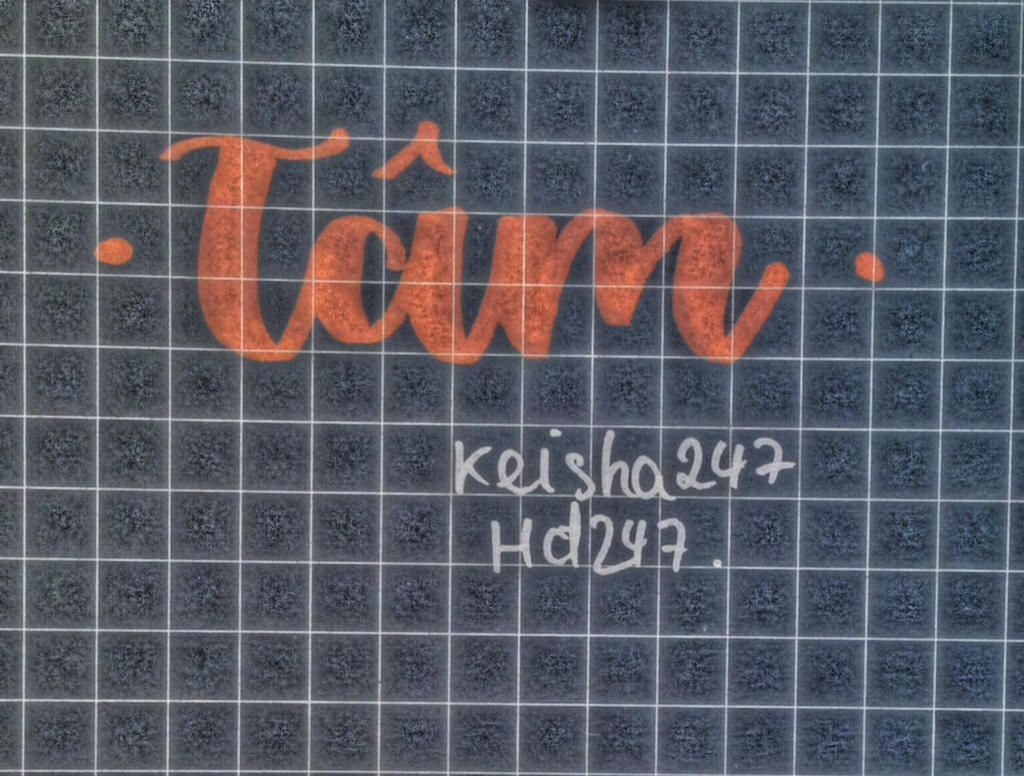 • Tâm •
Keisha247
Hd247.